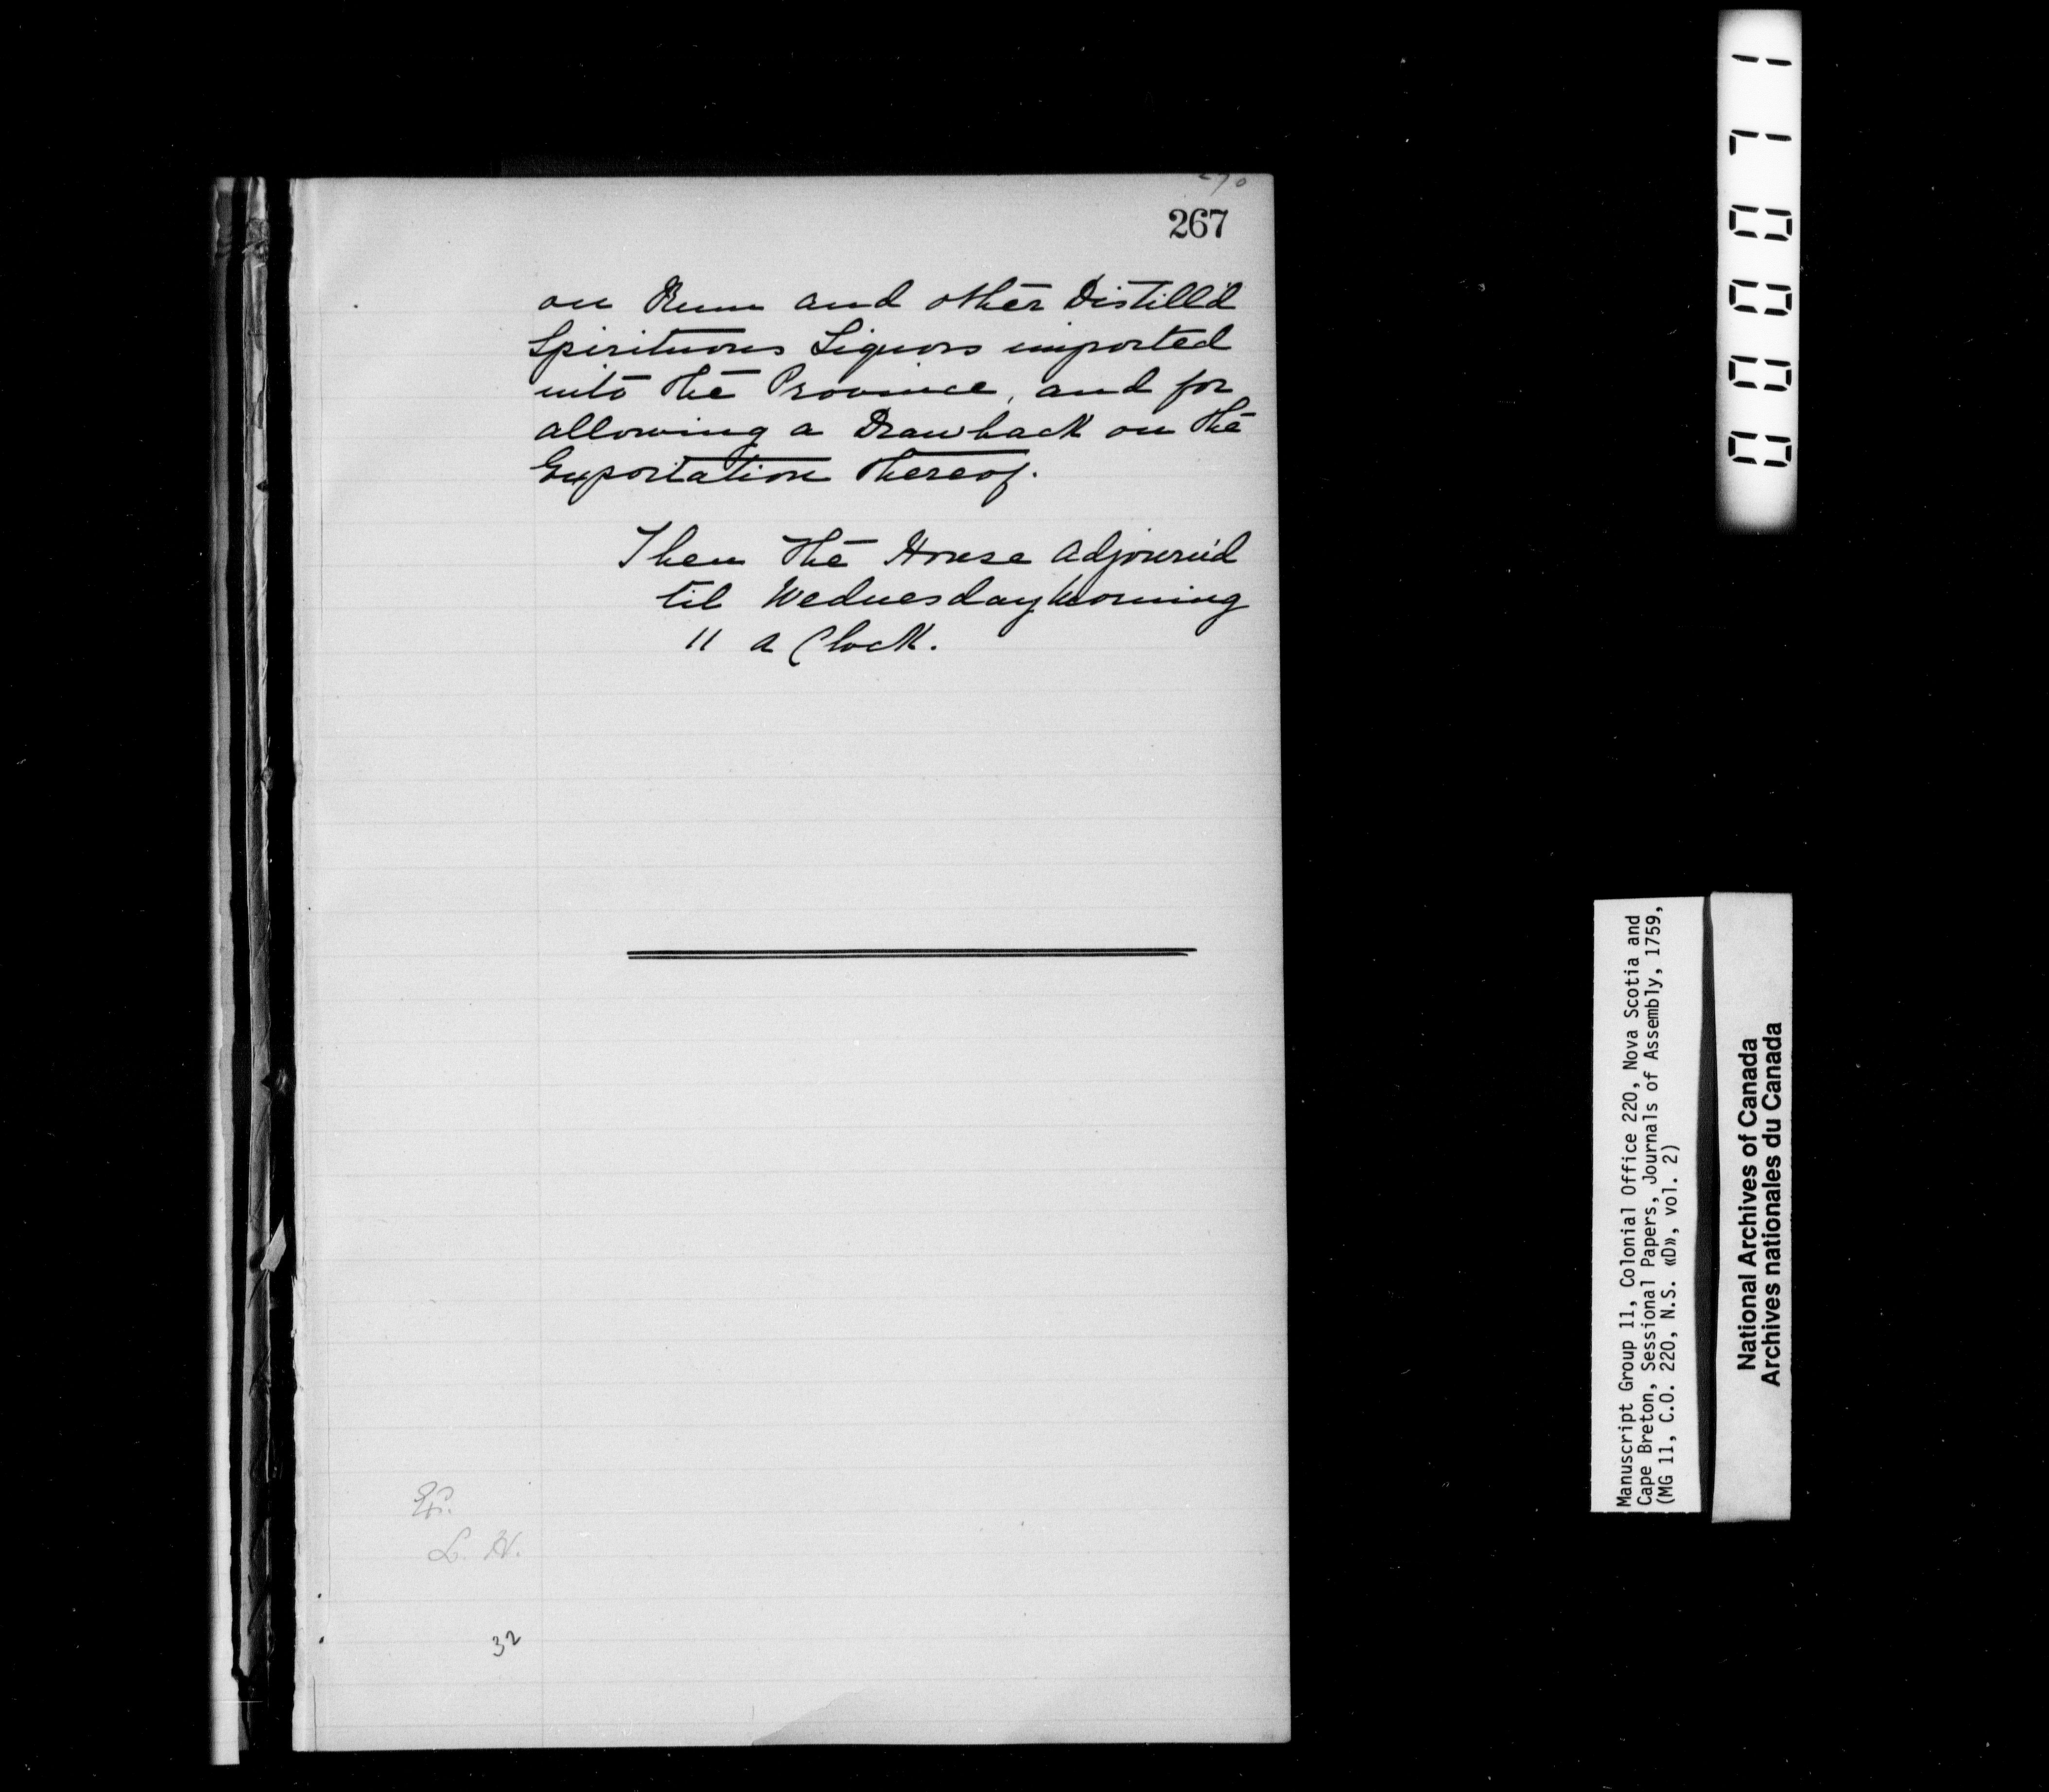 270
267
on Rum and other Distill'd
Spirituous Liquors imported
into the Province, and for
allowing a Drawback on the
Exportation thereof.
Then the House adjourn'd
til Wednesday Morning
11 a Clock.
L. H.
32
000071
Manuscript Group 11, Colonial Office 220, Nova Scotia and
Cape Breton, Sessional Papers, Journals of Assembly, 1759,
(MG 11, C.O. 220, N.S. «D», vol. 2)
National Archives of Canada
Archives nationales du Canada